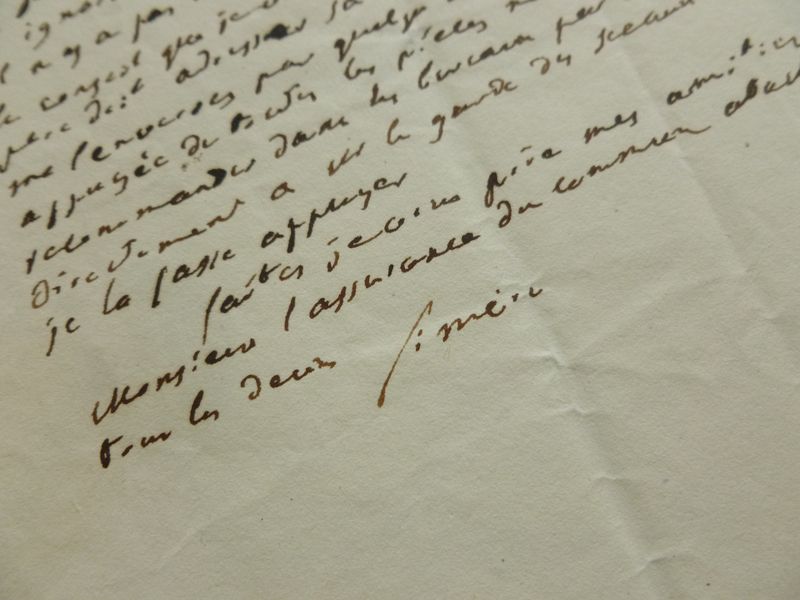 ignor
il n'y a pas
le conseil que je
père doit adresser sa
me l'envoyer par quelqu
appuyée de toutes les pièces
recommander dans les bureaux par
directement a mr le garde des sceaux
je la fasse appuyer
faites je vous prie mes amitiés
Monsieur l'assurance du commun
tous les deux Siméon